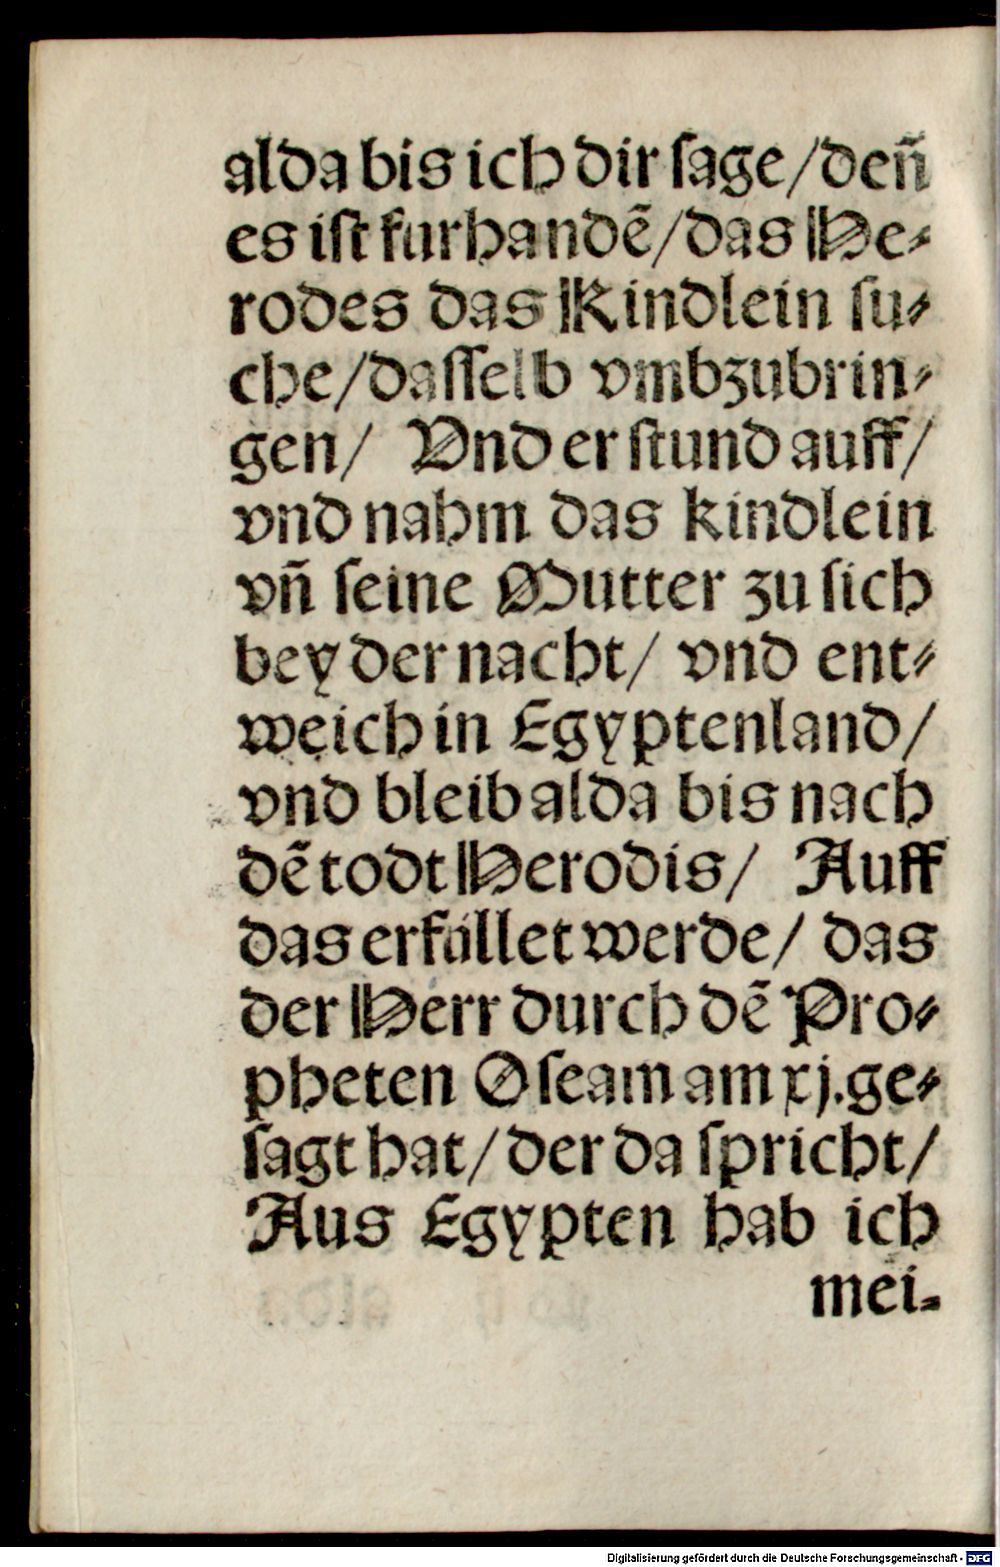 alda bis ich dir ſage/deñ
es iſt furhandẽ/das He-
rodes das Kindlein ſu-
che/daſſelb vmbzubrin-
gen/ Vnd er ſtund auff/
vnd nahm das kindlein
vñ ſeine Mutter zu ſich
bey der nacht/ vnd ent-
weich in Egyptenland/
vnd bleib alda bis nach
dẽ todt Herodis/ Auff
das erfüllet werde/ das
der Herr durch dẽ Pro-
pheten Oſeam am xj.ge-
ſagt hat/der da ſpricht/
Aus Egypten hab ich
mei-
Digitalisierung gefördert durch die Deutsche Forschungsgemeinschaft - DFG